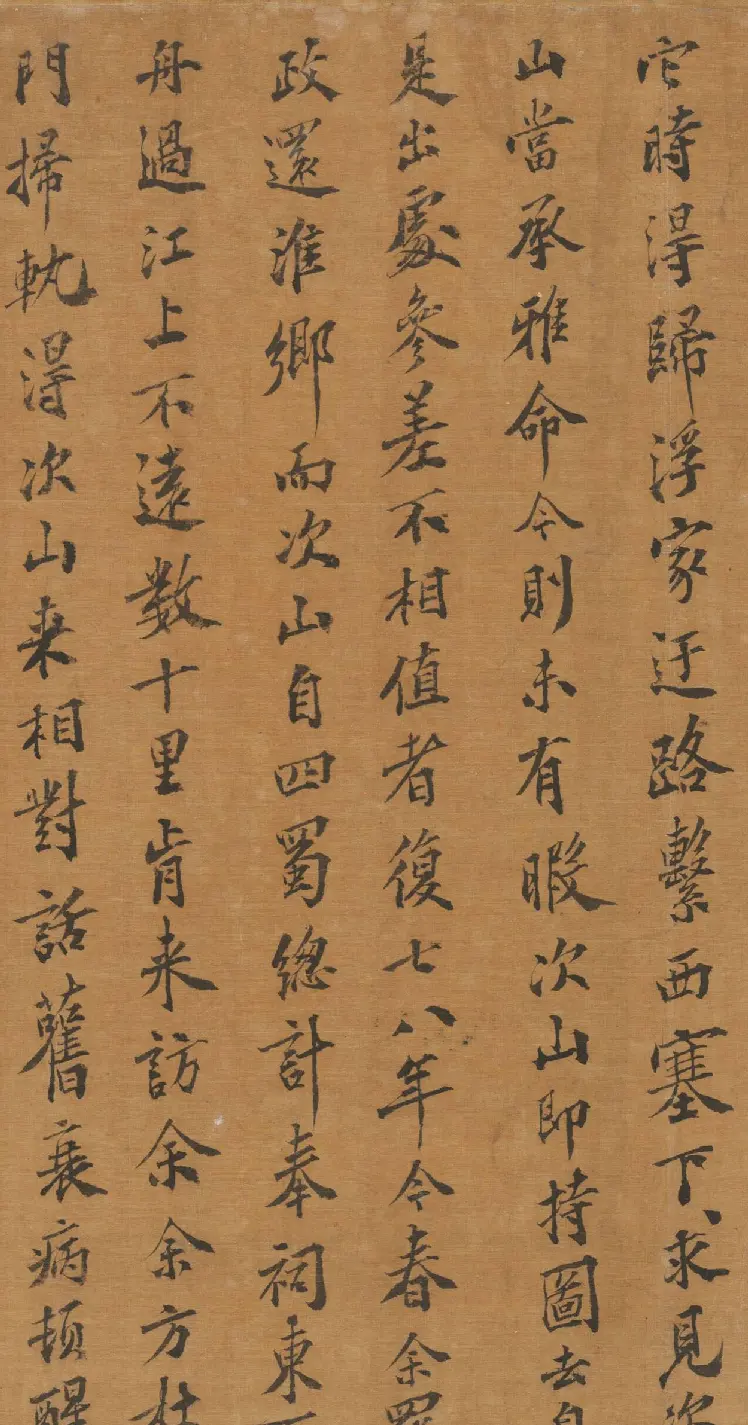 它時得歸浮家迂路繫西塞下求見次
山當承雅命今則未有暇次山即持圖去自
是出處參差不相值者復七八年今春余罷
政還淮鄉而次山自四蜀總計奉祠東
舟過江上不遠數十里肯来訪余余方杜
門掃軌得次山来相對話舊衰病頓醒